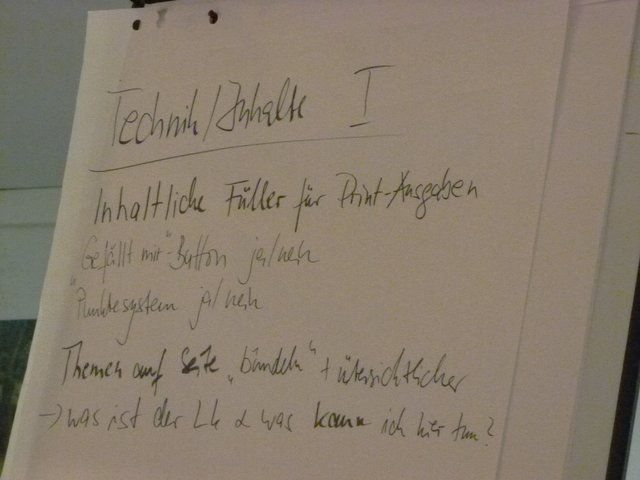 Technik/Inhalte I
Inhaltliche Füller für Print-Ausgaben
Gefällt mir"-Button ja/nein
"Punktesystem ja/nein
Themen auf Seite „bündeln" + übersichtlicher
→ was ist der LK & was kann ich hier tun?